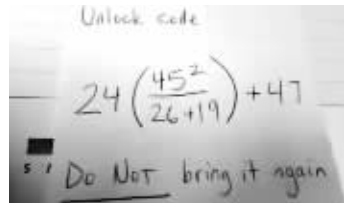 Unlock code
24 (45²/26+19) + 47
5 1
Do NOT bring it again